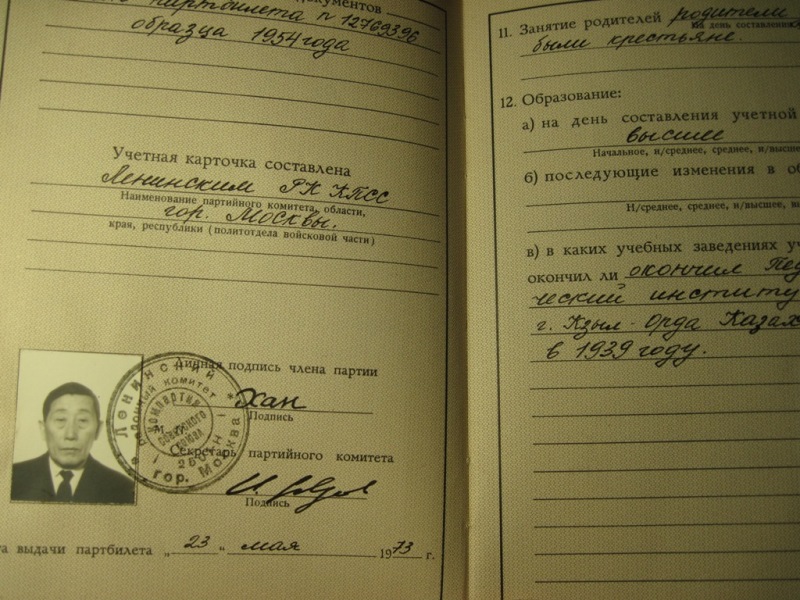 документов
партбилета № 12769396
образца 1954 года
Учетная карточка составлена
Ленинским РК КПСС
Наименование партийного комитета, области,
гор. Москвы.
края, республики (политотдела войсковой части)
Личная подпись члена партии
Хан
Подпись
М. П.
Секретарь партийного комитета
Подпись
та выдачи партбилета „ 23 “ мая 1973 г.
Ленинский районный комитет
гор. Москва
Компартия Советского Союза
11. Занятие родителей родители
на день составления
были крестьяне.
12. Образование:
а) на день составления учетной
высшее
Начальное, н/среднее, среднее, н/высшее
б) последующие изменения в об
Н/среднее, среднее, н/высшее, вы
в) в каких учебных заведениях уч
окончил ли окончил Пед
ческий институт
г. Кзыл-Орда Казах
в 1939 году.